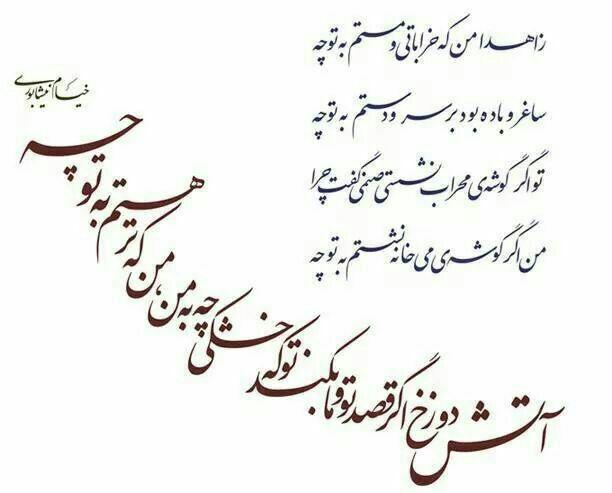 زاهدا من که خراباتی و مستم به تو چه
ساغر و باده بود بر سر و دستم به تو چه
تو اگر گوشه‌ی محراب نشستی صنمی گفت چرا
من اگر گوشه‌ی می خانه نشستم به تو چه
آتش دوزخ اگر قصد تو و ما بکند تو که خشکی چه به من، من که تر هستم به تو چه
خیام نیشابوری